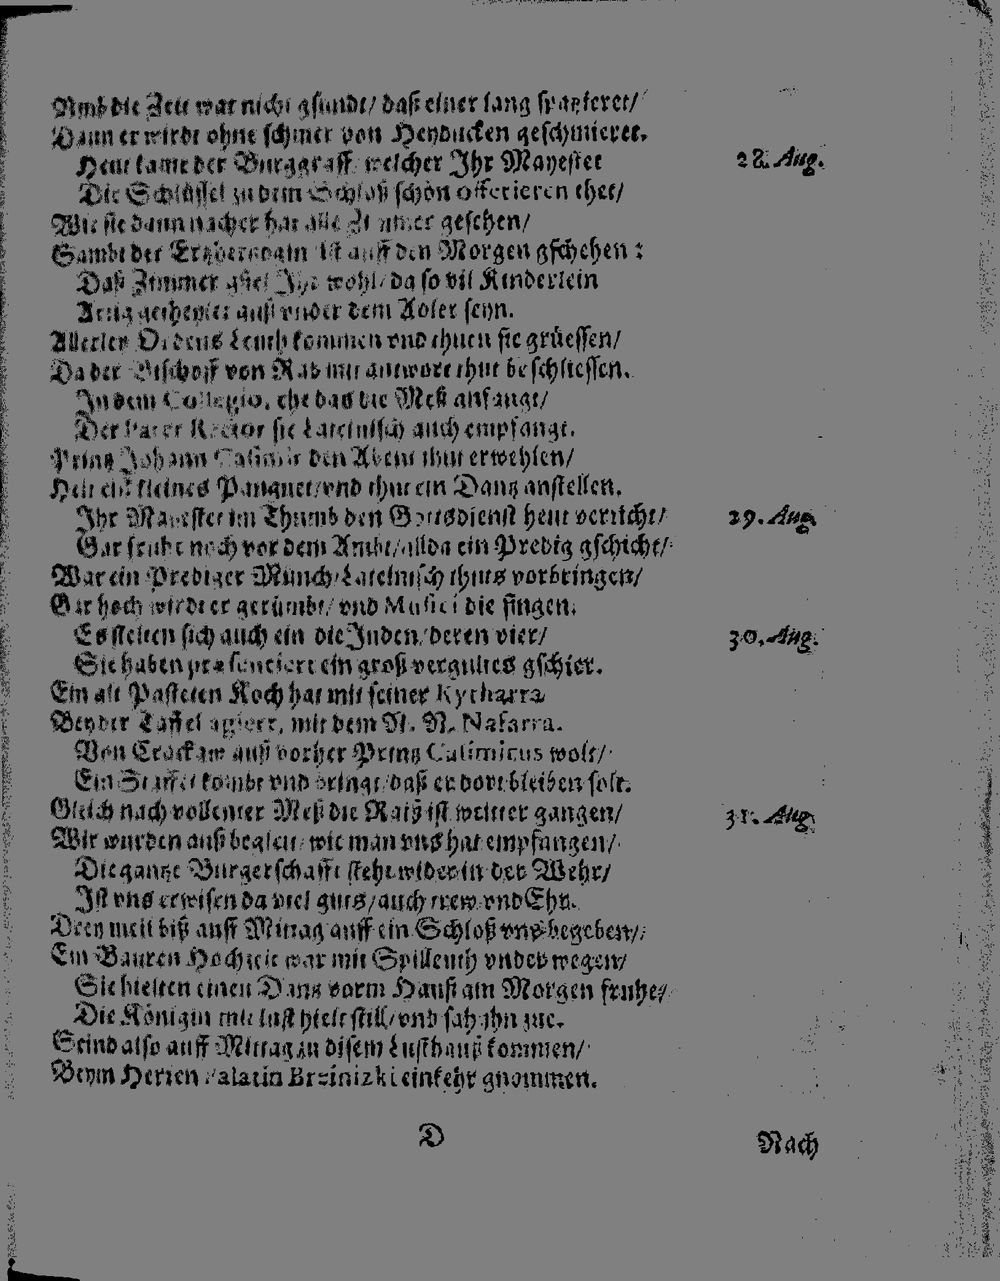 Umb die Zeit war nicht gsundt/ daß einer lang spazieret/
Dann er wirdt ohne schmer von Heyducken geschmieret.
Heut kame der Burggraff/ welcher Ihr Mayestet 28. Aug.
Die Schlüssel zu dem Schloß schön offerieren thet/
Wie sie dann nacher hat alle Zimmer gesehen/
Sambt der Ertzhertzogin ist auff den Morgen gschehen:
Daß Zimmer gfiel Ihr wohl/ da so vil Kinderlein
Artig auß vnder dem Adler seyn.
Allerley Ordens Leuth kommen vnd thuen sie grüessen/
Da der Bischoff von Rab mit antwort thut beschliessen.
In dem Collegio, ehe das die Meß anfangt/
Der Pater Rector sie Lateinisch auch empfangt.
Printz Johann Casimir den Abent thut erwehlen/
Helt ein kleines Panquet/ vnd thut ein Dantz anstellen.
Ihr Mayestet im Thumb den Gottsdienst heut verricht/ 29. Aug.
Gar fruhe noch vor dem Ambt/ allda ein Predig gschicht/
War ein Prediger Münch/ Lateinisch thuts vorbringen/
Gar hoch wirdt er gerümbt/ vnd Musici die singen.
Es stelten sich auch ein die Juden/ deren vier/ 30. Aug.
Sie haben præsentiert ein groß vergultes gschier.
Ein alt Pasteten Koch hat mit seiner Kytharra
Bey der Taffel agiert, mit dem N. N. Nafarra.
Von Crackaw auß vorher Printz Casimirus wolt/
Ein Staffet kombt vnd bringt/ daß er dort bleiben solt.
Gleich nach vollenter Meß die Raiß ist weitter gangen/ 31. Aug.
Wir wurden auß begleit/ wie man vns hat empfangen/
Die gantze Burgerschafft steht wider in der Wehr/
Ist vns erwisen da viel guts/ auch trew vnd Ehr.
Drey meil biß auff Mittag auff ein Schloß vns begeben/
Ein Bauren Hochzeit war mit Spilleuth vnder wegen/
Sie hielten einen Dantz vorm Hauß am Morgen fruhe/
Die Königin mit lust hielt still/ vnd sah ihn zue.
Seind also auff Mittag zu disem Lusthauß kommen/
Beym Herren Palatin Brzinizki einkehr gnommen.
D Nach